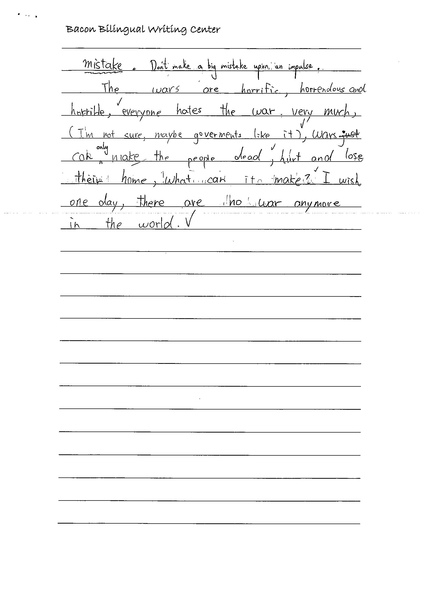 Bacon Bilingual Writing Center
mistake. Don't make a big mistake upon an impulse.
The wars are horrific, horrendous and
horrible, everyone hates the war very much,
(I'm not sure, maybe goverments like it), Wars just
can only make the people dead, hurt and lose
their home, What can it make? I wish
one day, there are no war anymore
in the world.